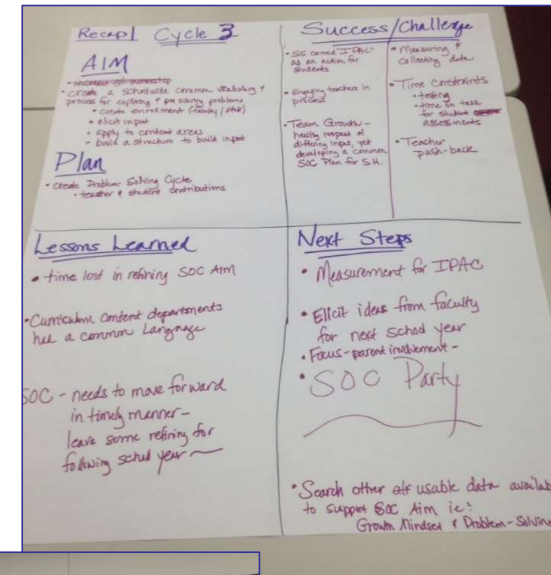 Recap! Cycle 3
AIM
• create a schoolwide common vocabulary &
process for exploring & possessing problems
• create environment (faculty / staff)
• elicit input
• apply to content areas
• build a structure to build input
Plan
• Create Problem Solving Cycle
• teacher & student contributions
Success/Challenge
• SS coined "IPAC"
as an action for
students
• Engaging teachers in
process
• Team Growth -
healthy respect of
differing input, yet
developing a common
SOC Plan for S.H.
• Measuring &
collecting data
• Time Constraints
• testing
• time on task
for student
assessments
• Teacher
push-back
Lessons Learned
• time lost in refining SOC AIM
• Curriculum content departments
has a common Language
SOC - needs to move forward
in timely manner -
leave some refining for
following school year
Next Steps
• Measurement for IPAC
• Elicit ideas from faculty
for next school year
• Focus - parent involvement -
• SOC Party
• Search other usable data availab
to support SOC Aim ie:
Growth Mindset & Problem-Solving